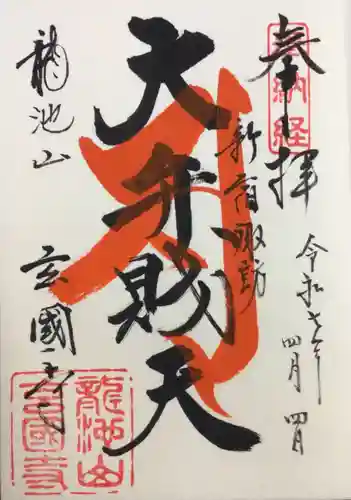 奉拝
納経
令和七年
四月四日
新宿諏訪
大弁財天
龍池山
玄國寺
龍池山
玄國寺